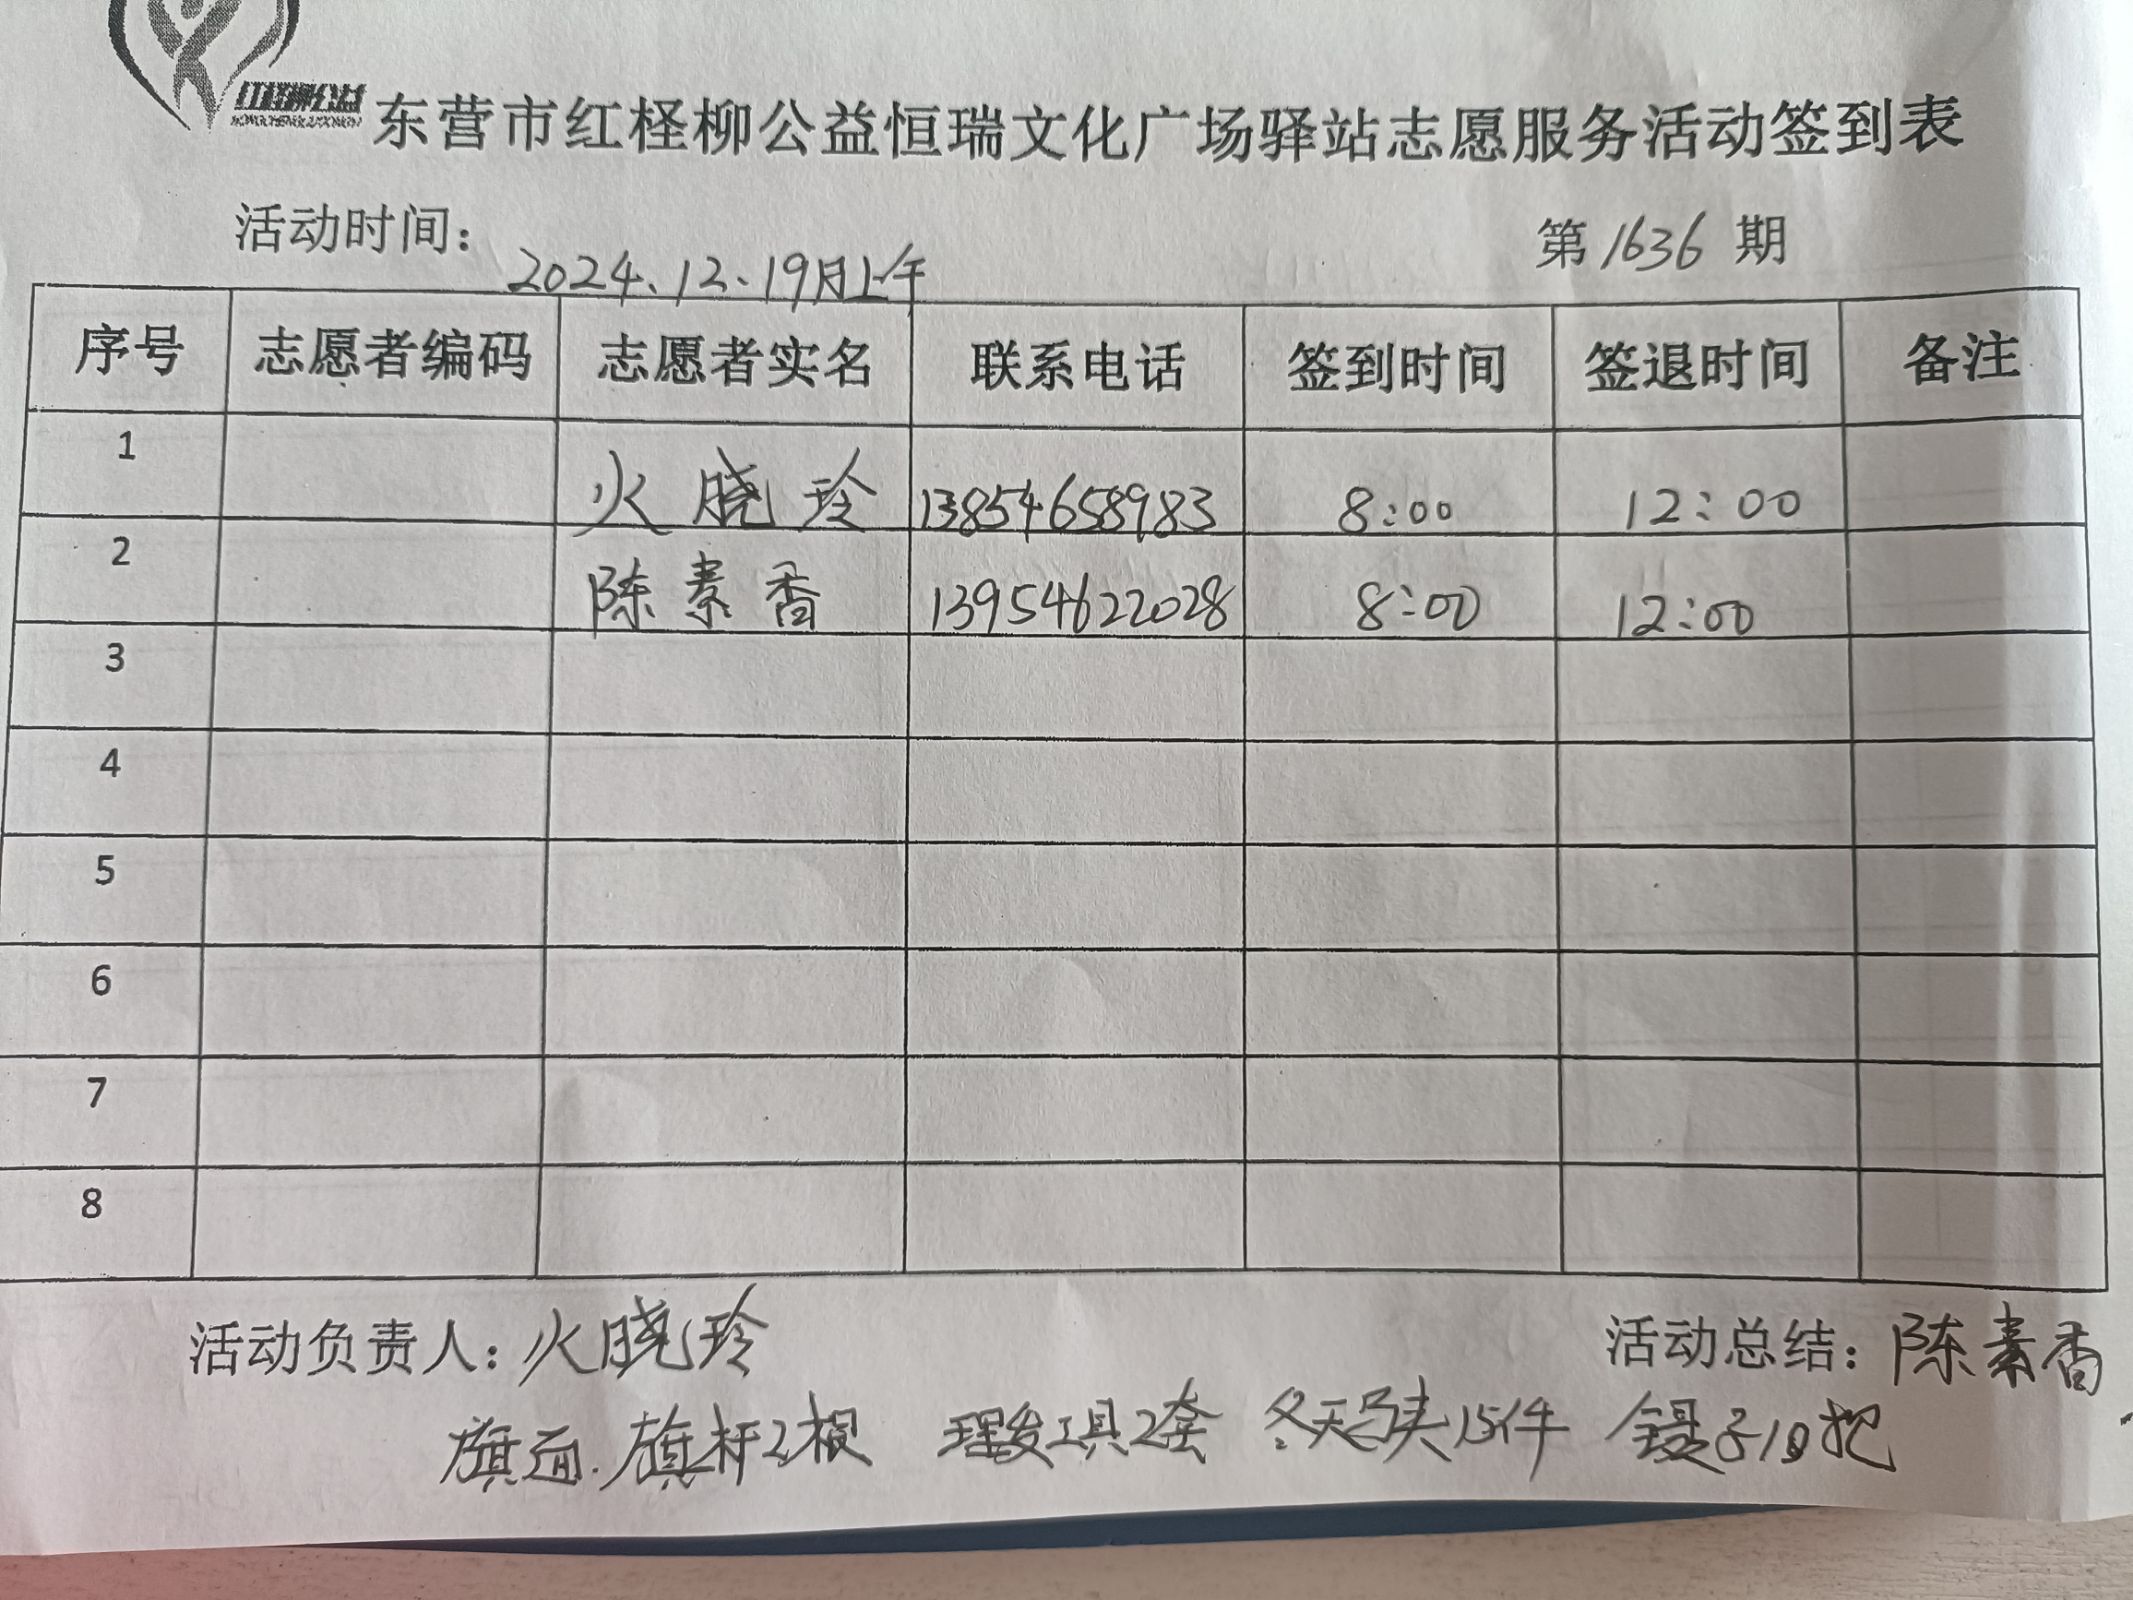 红柽柳公益
东营市红柽柳公益恒瑞文化广场驿站志愿服务活动签到表
活动时间：2024.12.19月上午 第1636期
序号 志愿者编码 志愿者实名 联系电话 签到时间 签退时间 备注
1 火晓玲 13854658983 8:00 12:00
2 陈素香 13954622028 8:00 12:00
3
4
5
6
7
8
活动负责人：火晓玲 活动总结：陈素香
旗面.旗杆2根 理发工具2套 冬天马夹15件 镊子10把